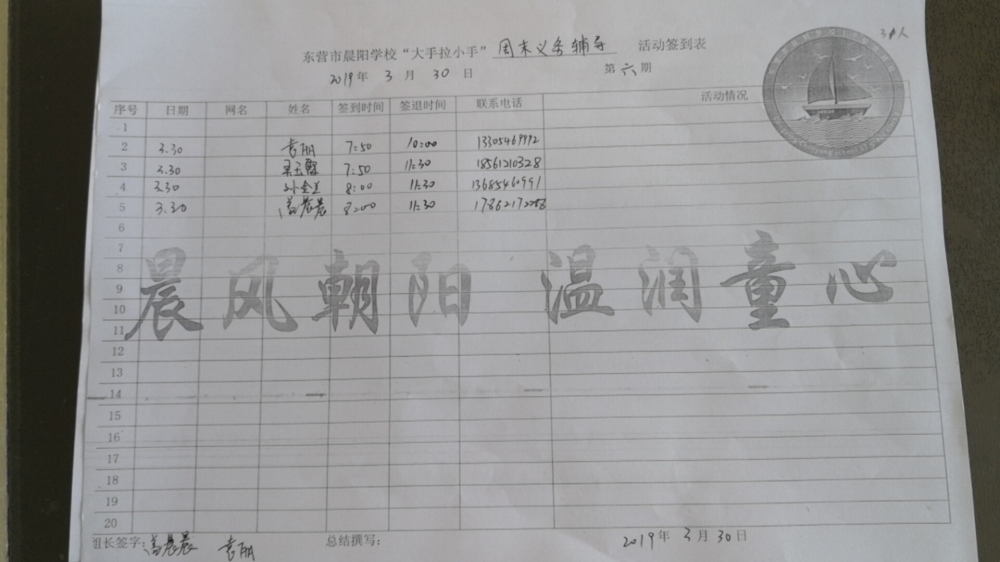 东营市晨阳学校“大手拉小手” 周末义务辅导 活动签到表
2019年 3 月 30 日 第 六 期
序号 日期 网名 姓名 签到时间 签退时间 联系电话 活动情况
1
2 3.30 袁丽 7:50 10:00 13305469992
3 3.30 7:50 11:30 18561210328
4 3.30 8:00 11:30 13685460991
5 3.30 晨晨 8:00 11:30
6
7
8
9
10
晨风朝阳 温润童心
11
12
13
14
15
16
17
18
19
20
组长签字: 晨晨 袁丽 总结撰写: 2019年 3 月 30 日